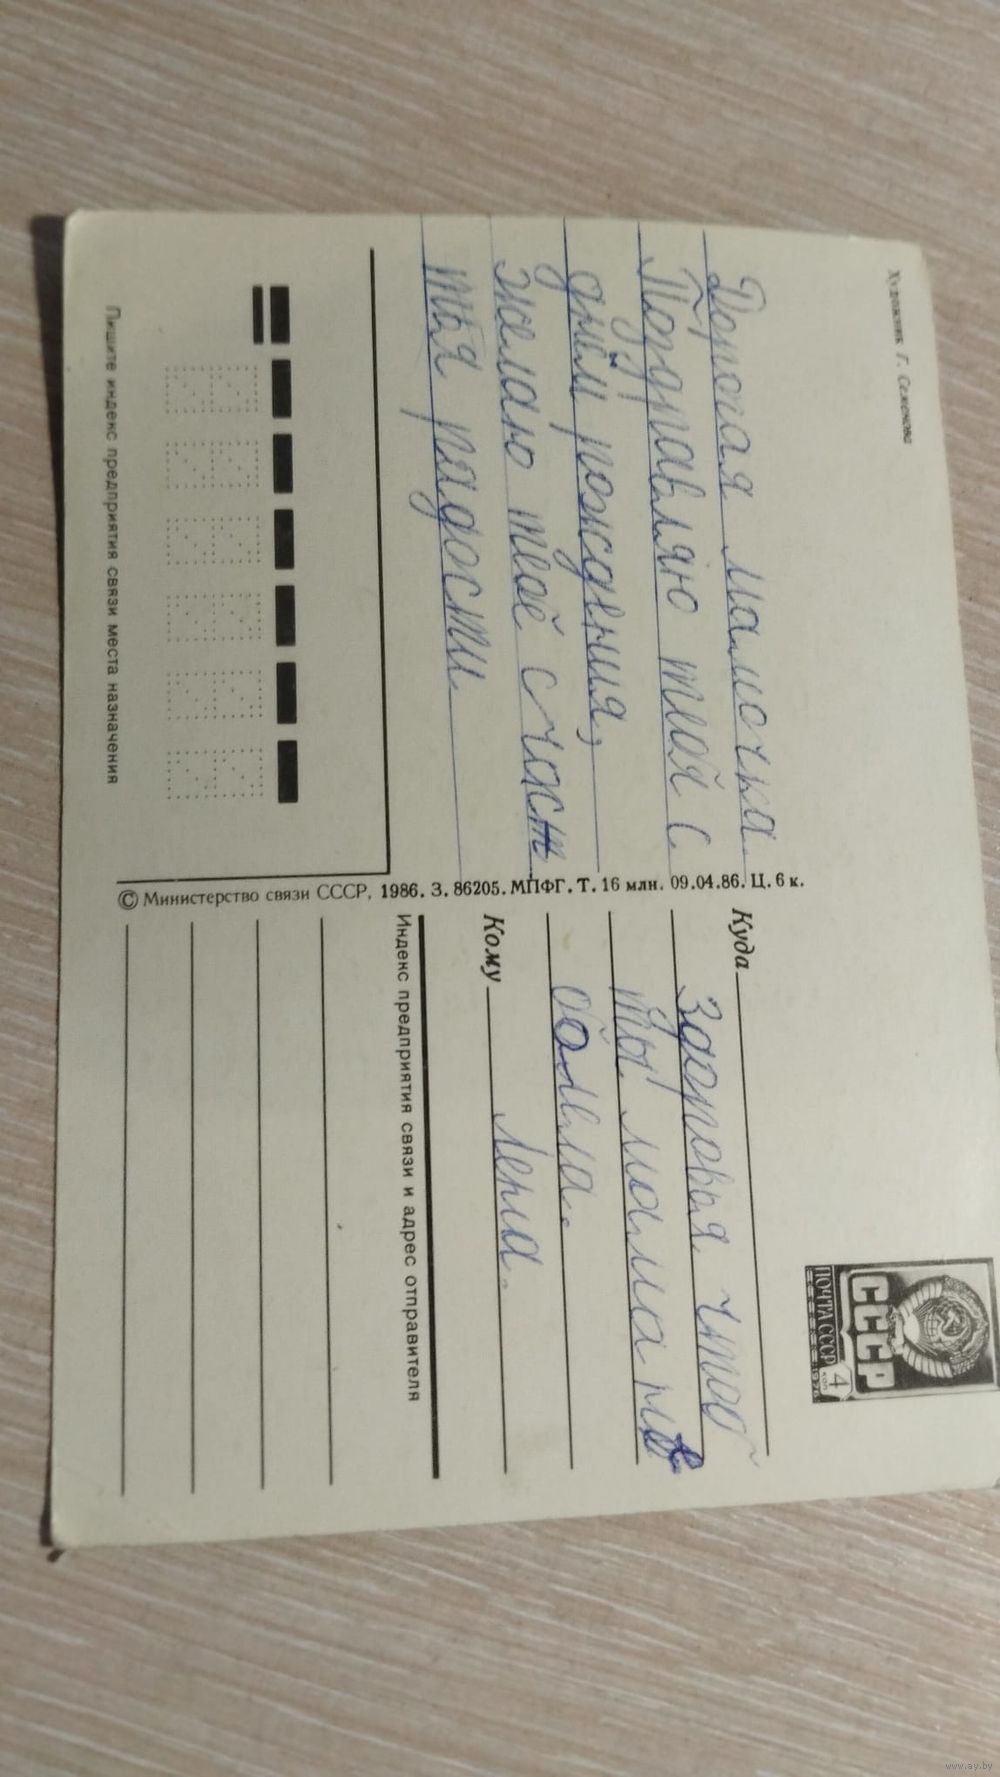 Художник Г. Семенова
Дорогая мамочка
Поздравляю твоя с
днём рождения,
желаю твоё с част
тья радости
Пишите индекс предприятия связи места назначения
© Министерство связи СССР, 1986. З. 86205. МПФГ. Т. 16 млн. 09.04.86. Ц. 6 к.
СССР
ПОЧТА СССР
4
КОП
Куда
Здоровья чтоб
ты мама
Кому Лена.
Индекс предприятия связи и адрес отправителя
www.ay.by